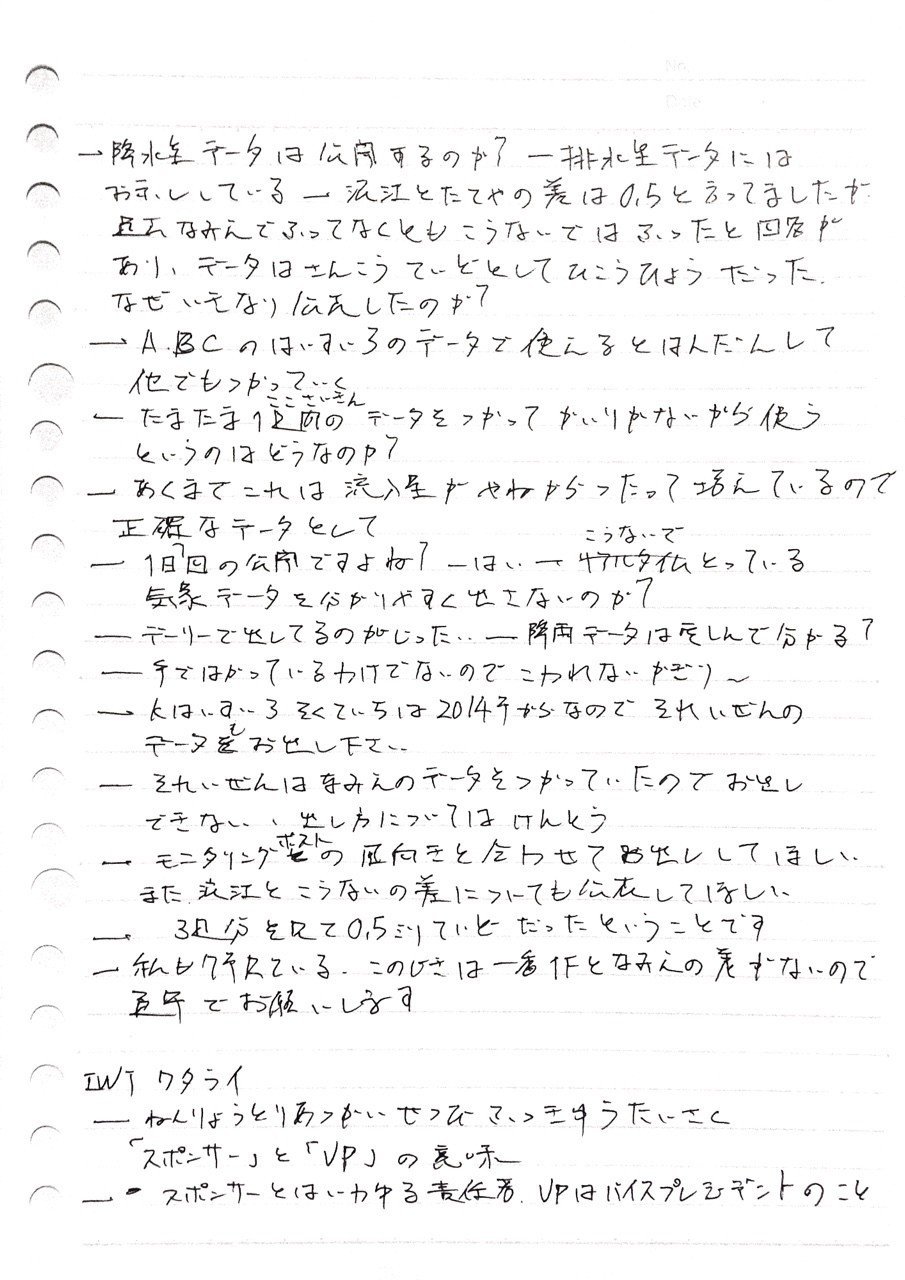 → 降水量データは公開するのか? ー排水量データには
お示ししている ー 浪江とたてやの差は0.5と言ってましたが
なみえでふってなくともこうないではふったと回答が
あり、データはさんこうていどとしてひこうひょうだった.
なぜいきなり公表したのか?
→ A.BCのはいすいろのデータで使えるとはんだんして
他でもつかっていく
ここさいきん
ー たまたま1週間のデータをつかってかいりがないから使う
というのはどうなのか?
ー あくまでこれは流入量がやねからつたって増えているので
正確なデータとして
こうないで
ー 1日1回の公開ですよね? ーはい ー リアルタイムとっている
気象データを分かりやすく出さないのか?
ー デーリーで出してるのがじったい.. ー 降雨データは安しんで分かる?
ー 手ではがっているわけでないのでこわれないかぎり〜
→ Kはいすいろそくていちは2014年からなのでそれいぜんの
データもお出し下さい
ー それいぜんはなみえのデータをつかっていたのでお出し
できない、出し方についてはけんとう
ポスト
→ モニタリングの風向きと合わせてお出ししてほしい
また浪江とこうないの差についても公表してほしい
→ 3週分を見て0.5ミリていどだったということです
→ 私も7年見ている. このじきは一番作となみえの差がないので
通年でお願いします
IWJ ワタライ
ー ねんりょうとりあつかいせつび
「スポンサー」と「VP」の意味
ー・スポンサーとはいわゆる責任者. VPはバイスプレジデントのこと